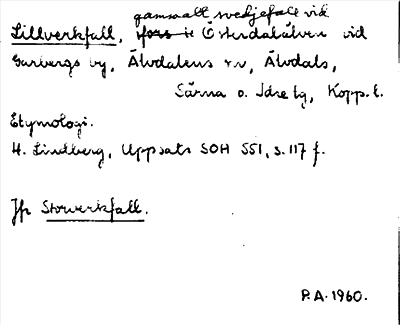 gammalt svedjefall vid
Lillverkfall, fors i Österdalälven vid
Garbergs by, Älvdalens sn, Älvdals,
Särna o. Idre tg, Kopp. l.
Etymologi.
H. Lindberg, Uppsats SOH 551, s. 117 f.
Jfr Storverkfall.
P.A. 1960.